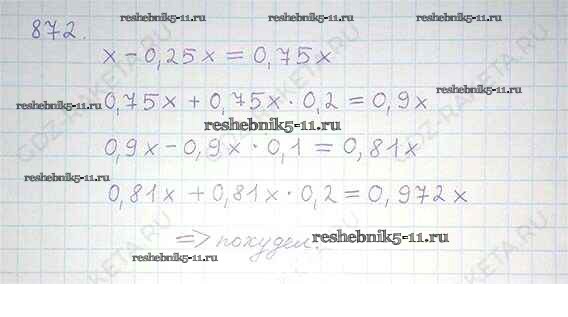 872.
reshebnik5-11.ru reshebnik5-11.ru reshebnik5-11.ru
x - 0,25x = 0,75x
reshebnik5-11.ru
0,75x + 0,75x · 0,2 = 0,9x
reshebnik5-11.ru
0,9x - 0,9x · 0,1 = 0,81x
reshebnik5-11.ru
0,81x + 0,81x · 0,2 = 0,972x
=> похудел.
reshebnik5-11.ru
reshebnik5-11.ru
GDZ-RAKETA.RU
GDZ-RAKETA.RU